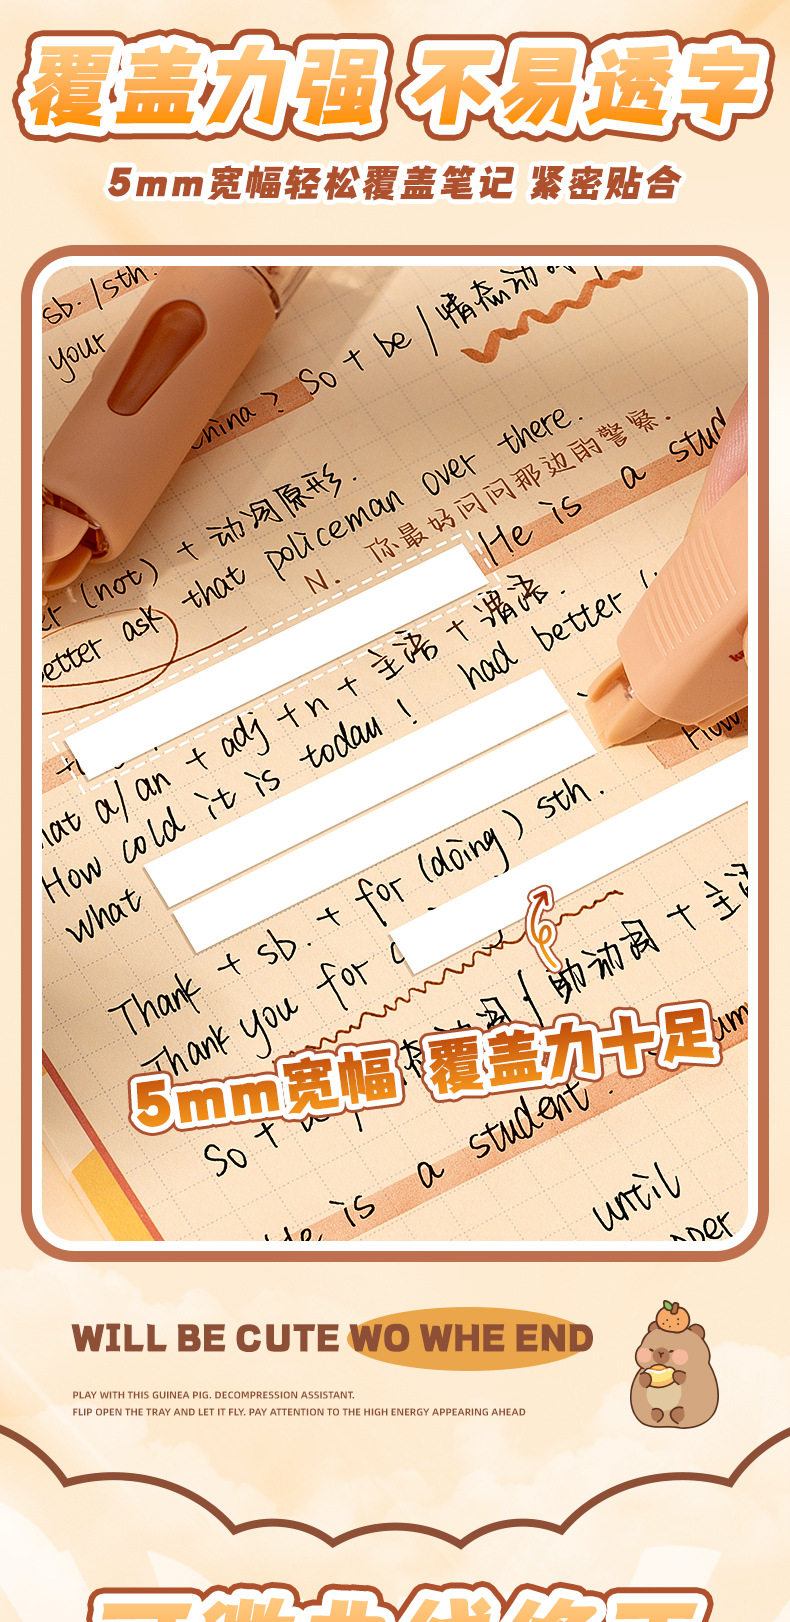 覆盖力强 不易透字
5mm宽幅轻松覆盖笔记 紧密贴合
sb. / sth.
your
China ? So + be / 情态动词 /
er (not) + 动词原形.
better ask that policeman over there.
N. 你最好问问那边的警察.
He is a stud
at a/an + adj + n + 主语 + 谓语.
How cold it is today ! had better (
What
How
Thank + sb. + for (doing) sth.
Thank you for
态动词 / 助动词 + 主语
5mm宽幅 覆盖力十足
So +
He is a student.
until
WILL BE CUTE WO WHE END
PLAY WITH THIS GUINEA PIG. DECOMPRESSION ASSISTANT.
FLIP OPEN THE TRAY AND LET IT FLY. PAY ATTENTION TO THE HIGH ENERGY APPEARING AHEAD